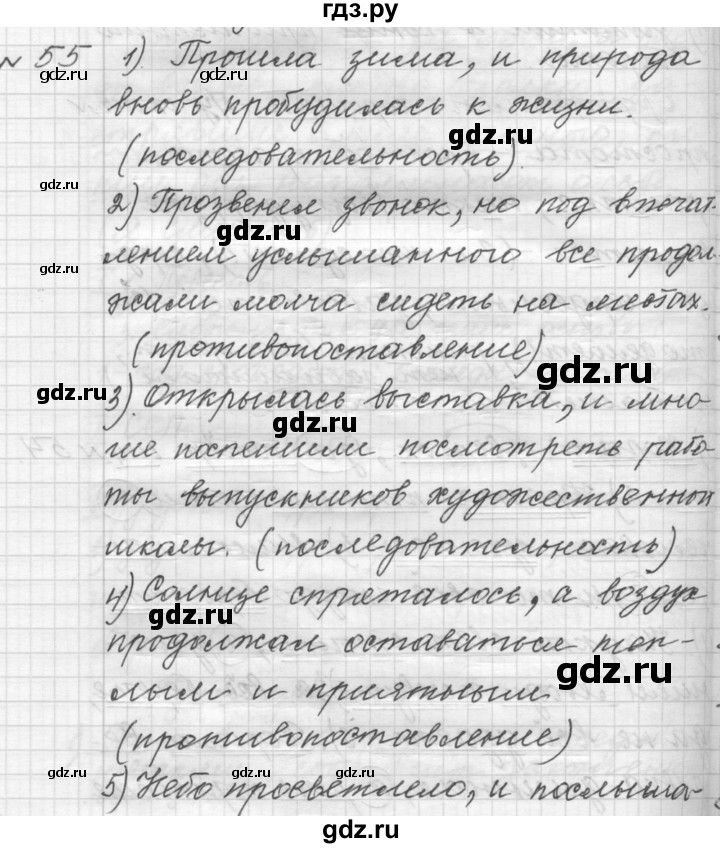 гдз.ру
№ 55 1). Прошла зима, и природа
вновь пробудилась к жизни.
(последовательность).
2) Прозвенел звонок, но под впечат-
лением услышанного все продол-
жали молча сидеть на местах.
(противопоставление)
3). Открылась выставка, и мно-
гие поспешили посмотреть рабо-
ты выпускников художественной
школы. (последовательность)
4) Солнце спряталось, а воздух
продолжал оставаться теп-
лым и приятным.
(противопоставление)
5) Небо просветлело, и послыша-
gdz.ru
gdz.ru
gdz.ru
gdz.ru
gdz.ru
gdz.ru
gdz.ru
gdz.ru
gdz.ru
gdz.ru
gdz.ru
gdz.ru
gdz.ru
gdz.ru